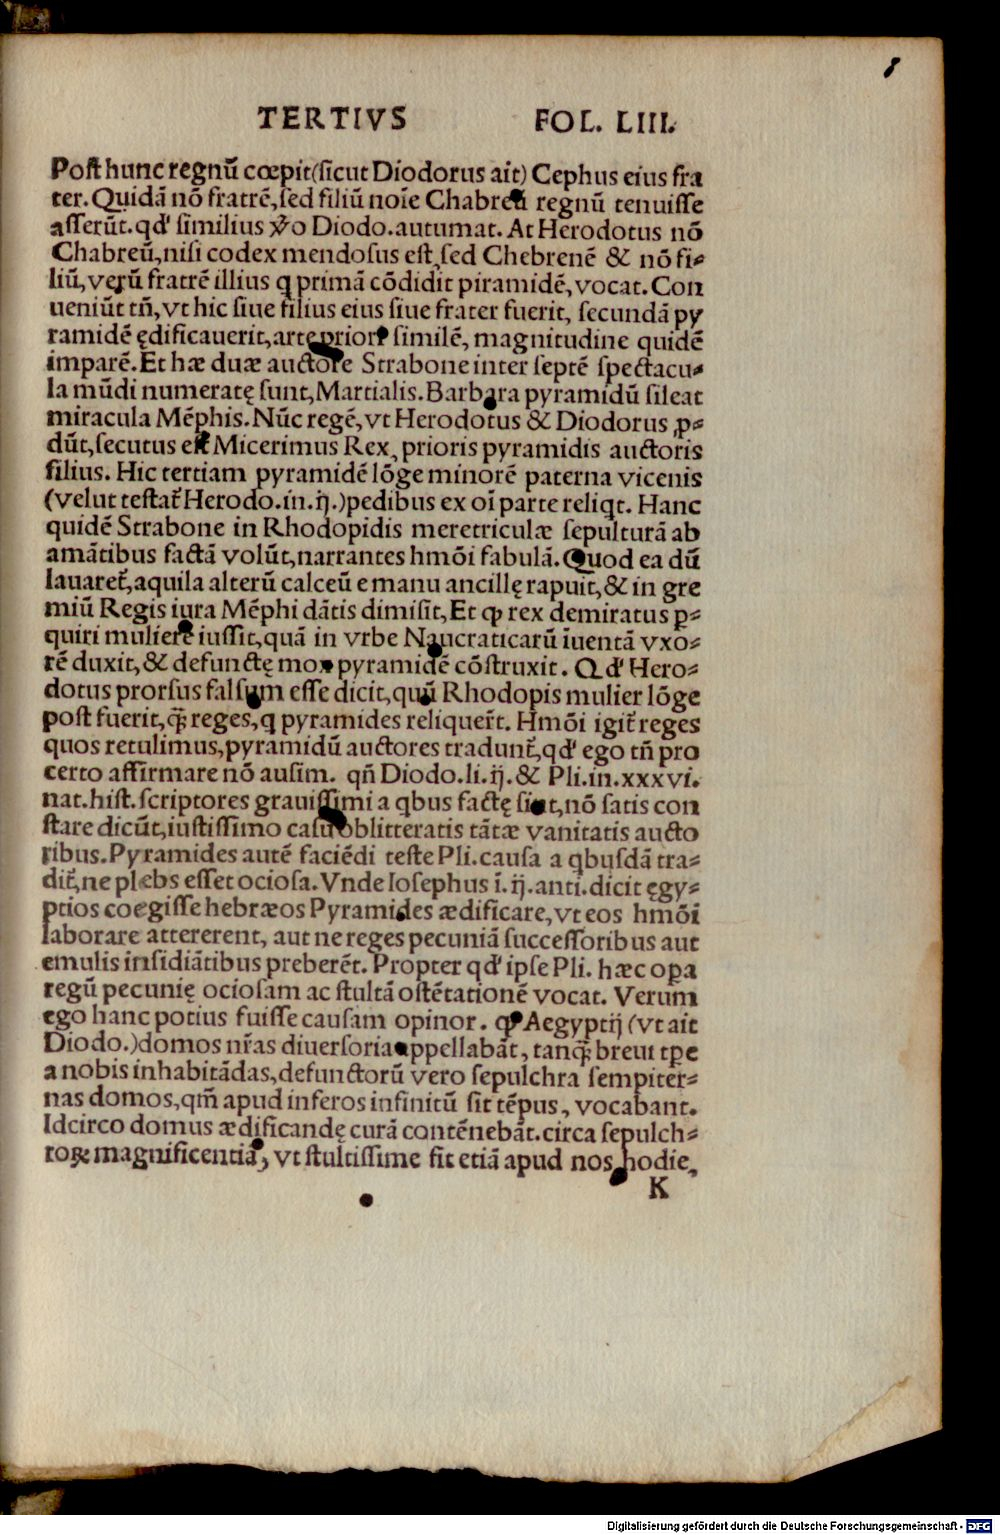 8
TERTIVS FOL. LIII.
Post hunc regnū cœpit (sicut Diodorus ait) Cephus eius fra
ter. Quidā nō fratrē, sed filiū noīe Chabreū regnū tenuisse
asserūt. qď similius ꝟo Diodo. autumat. At Herodotus nō
Chabreū, nisi codex mendosus est, sed Chebrenē & nō fi-
liū, verū fratrē illius q primā cōdidit piramidē, vocat. Con
ueniūt tñ, vt hic siue filius eius siue frater fuerit, secundā py
ramidē ędificauerit, arte priori similē, magnitudine quidē
imparē. Et hæ duæ auctore Strabone inter septē spectacu-
la mūdi numeratę sunt, Martialis. Barbara pyramidū sileat
miracula Mēphis. Nūc regē, vt Herodotus & Diodorus ꝓ-
dūt, secutus est Micerimus Rex, prioris pyramidis auctoris
filius. Hic tertiam pyramidē lōge minorē paterna vicenis
(velut testat᷑ Herodo. in. ij.) pedibus ex oī parte reliqt. Hanc
quidē Strabone in Rhodopidis meretriculæ sepulturā ab
amātibus factā volūt, narrantes hmōi fabulā. Quod ea dū
lauaret᷑, aquila alterū calceū e manu ancillę rapuit, & in gre
miū Regis iura Mēphi dātis dimisit, Et ꝙ rex demiratus ꝑ-
quiri mulierē iussit, quā in vrbe Naucraticarū īuentā vxo-
rē duxit, & defunctę mox pyramidē cōstruxit. Qď Hero-
dotus prorsus falsum esse dicit, quū Rhodopis mulier lōge
post fuerit, q̄ reges, q pyramides reliquer̄t. Hmōi igit᷑ reges
quos retulimus, pyramidū auctores tradunt᷑, qď ego tñ pro
certo affirmare nō ausim. qñ Diodo. li. ij. & Pli. in. xxxvi.
nat. hist. scriptores grauissimi a qbus factę sint, nō satis con
stare dicūt, iustissimo casu oblitteratis tātæ vanitatis aucto
ribus. Pyramides autē faciēdi teste Pli. causa a qbusdā tra-
dit᷑, ne plebs esset ociosa. Vnde Iosephus ī. ij. anti. dicit ęgy-
ptios coegisse hebræos Pyramides ædificare, vt eos hmōi
laborare attererent, aut ne reges pecuniā successoribus aut
emulis insidiātibus preberēt. Propter qď ipse Pli. hæc oꝑa
regū pecunię ociosam ac stultā ostētationē vocat. Verum
ego hanc potius fuisse causam opinor. ꝙ Aegyptij (vt ait
Diodo.) domos nr̄as diuersoria appellabāt, tanq̄ breui tꝑe
a nobis inhabitādas, defunctorū vero sepulchra sempiter-
nas domos, qm̄ apud inferos infinitū sit tēpus, vocabant.
Idcirco domus ædificandę curā contēnebāt. circa sepulch-
roꝝ magnificentiā, vt stultissime fit etiā apud nos hodie,
K
Digitalisierung gefördert durch die Deutsche Forschungsgemeinschaft - DFG